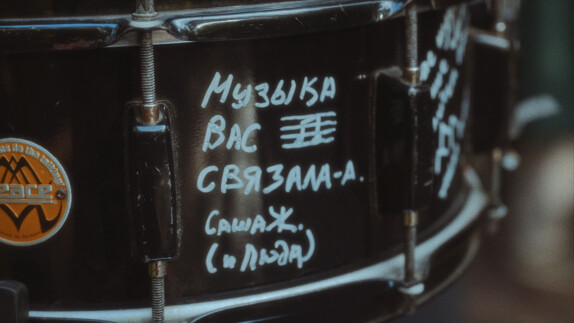 Музыка
вас
связала-а.
Саша Ж.
(и Люда)
eace